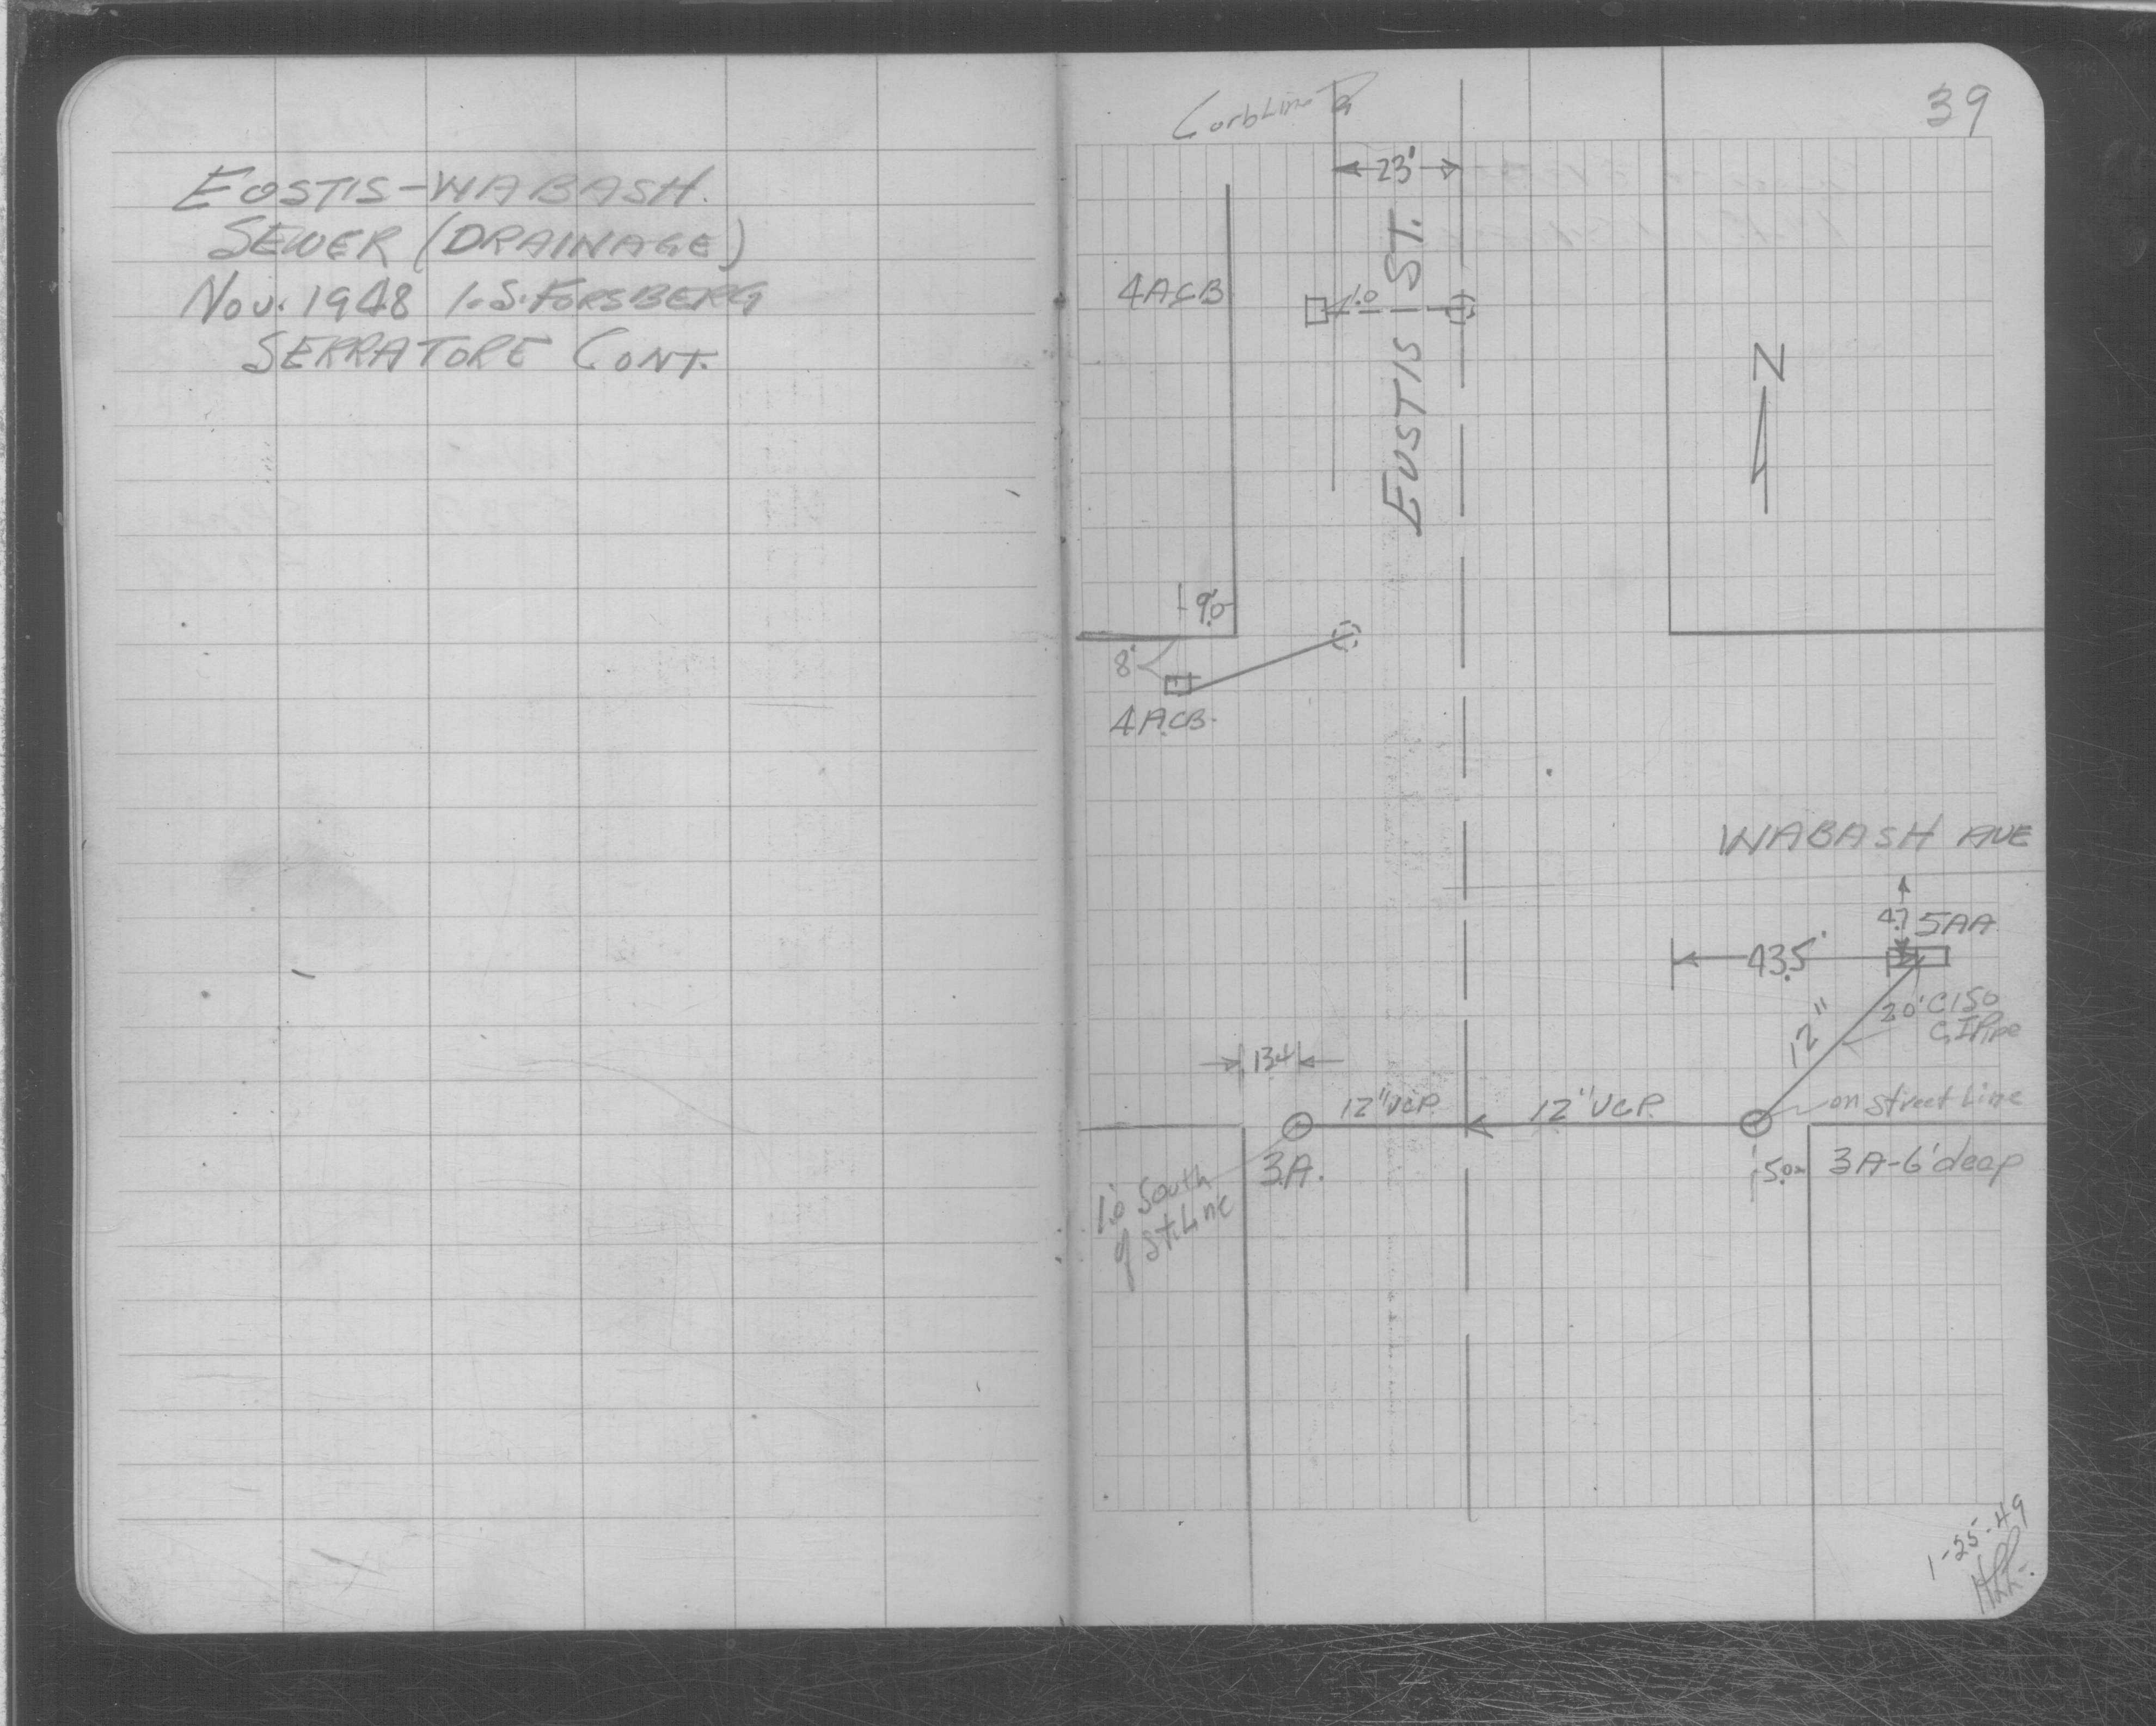 EUSTIS-WABASH.
SEWER (DRAINAGE)
Nov. 1948 I.S. FORSBERG
SERRATORE CONT.
39
Curb Line
23'
EUSTIS ST.
4ACB
1.0
N
9.0
8'
4ACB
WABASH AVE
4.7
5AA
43.5'
12"
20' C150
C.I. Pipe
13.4
12" VCP
12" VCP
on Street Line
3A.
5.0
3A-6' deep
1.0 South
of St. Line
1-25-49